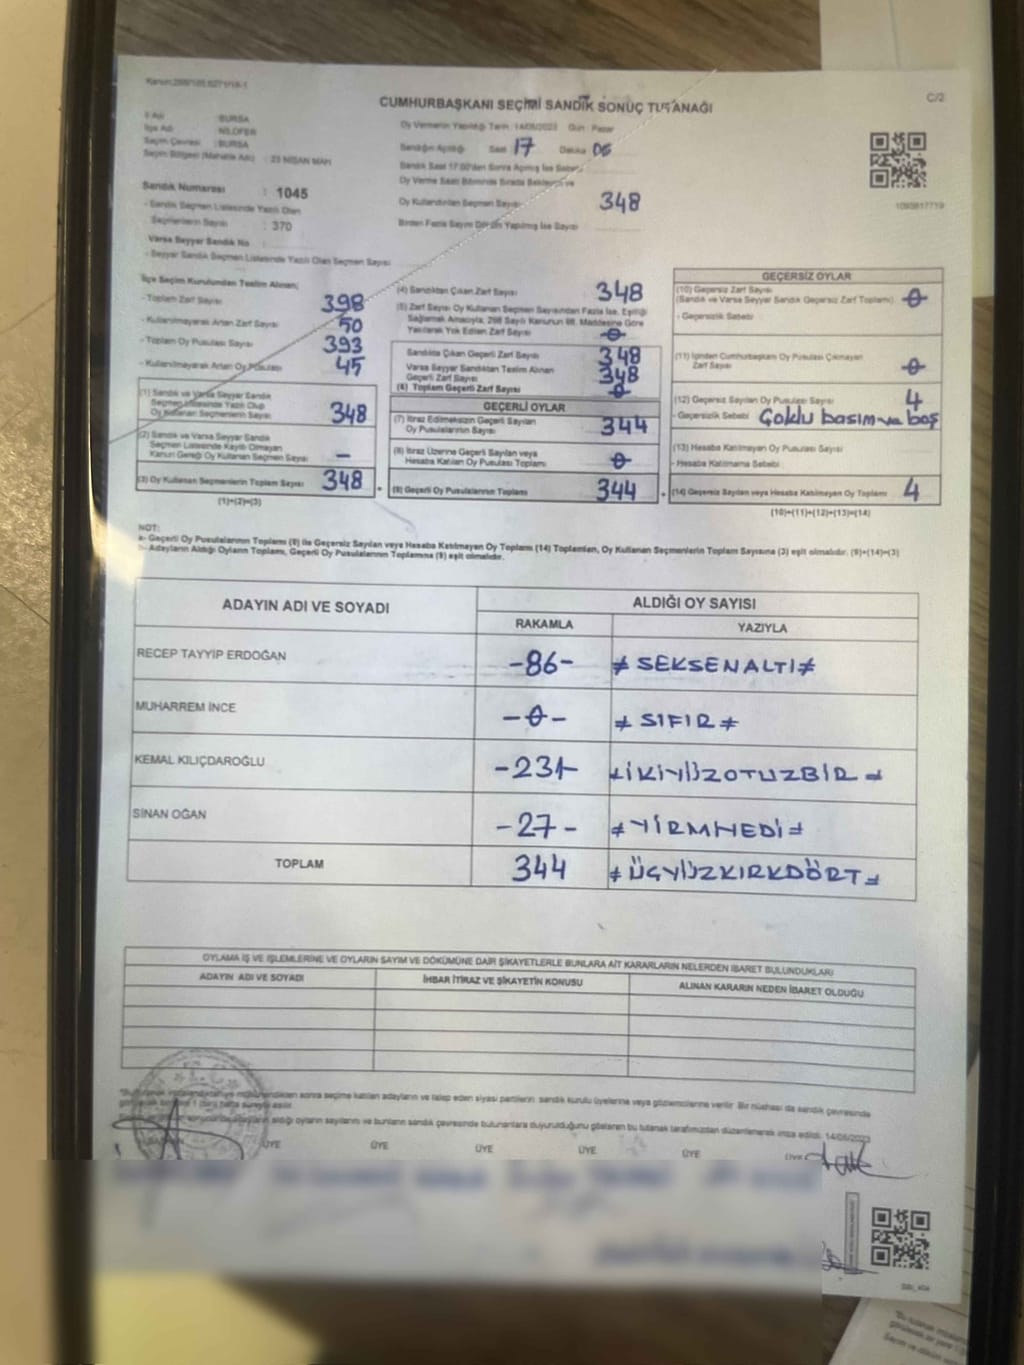 C/2
CUMHURBAŞKANI SEÇİMİ SANDIK SONUÇ TUTANAĞI
İli Adı : BURSA
İlçe Adı : NİLÜFER
Seçim Çevresi : BURSA
Seçim Bölgesi (Mahalle Adı) : 23 NİSAN MAH
Sandık Numarası : 1045
- Sandık Seçmen Listesinde Yazılı Olan
Seçmenlerin Sayısı : 370
Varsa Seyyar Sandık No
- Seyyar Sandık Seçmen Listesinde Yazılı Olan Seçmen Sayısı
Oy Vermenin Yapıldığı Tarih : 14/05/2023 Gün : Pazar
Sandığın Açıldığı Saat 17 Dakika 05
Sandık Saat 17:00'den Sonra Açılmış İse Sebebi
Oy Verme Saati Bitiminde Sırada Bekleyen ve
Oy Kullandırılan Seçmen Sayısı 348
Birden Fazla Sayım Döküm Yapılmış İse Sayısı
1093817719
İlçe Seçim Kurulundan Teslim Alınan;
- Toplam Zarf Sayısı 398
- Kullanılmayarak Artan Zarf Sayısı 50
- Toplam Oy Pusulası Sayısı 393
- Kullanılmayarak Artan Oy Pusulası 45
(1) Sandık ve Varsa Seyyar Sandık
Seçmen Listesinde Yazılı Olup
Oy Kullanan Seçmenlerin Sayısı 348
(2) Sandık ve Varsa Seyyar Sandık
Seçmen Listesinde Kayıtlı Olmayan
Kanun Gereği Oy Kullanan Seçmen Sayısı -
(3) Oy Kullanan Seçmenlerin Toplam Sayısı 348
(1)+(2)=(3)
(4) Sandıktan Çıkan Zarf Sayısı 348
(5) Zarf Sayısı Oy Kullanan Seçmen Sayısından Fazla İse, Eşitliği
Sağlamak Amacıyla, 298 Sayılı Kanunun 98. Maddesine Göre
Yakılarak Yok Edilen Zarf Sayısı 0
Sandıkta Çıkan Geçerli Zarf Sayısı 348
Varsa Seyyar Sandıktan Teslim Alınan 348
Geçerli Zarf Sayısı
(6) Toplam Geçerli Zarf Sayısı 0
GEÇERLİ OYLAR
(7) İtiraz Edilmeksizin Geçerli Sayılan
Oy Pusulalarının Sayısı 344
(8) İtiraz Üzerine Geçerli Sayılan veya
Hesaba Katılan Oy Pusulası Toplamı 0
(9) Geçerli Oy Pusulalarının Toplamı 344
GEÇERSİZ OYLAR
(10) Geçersiz Zarf Sayısı
(Sandık ve Varsa Seyyar Sandık Geçersiz Zarf Toplamı) 0
- Geçersizlik Sebebi
(11) İçinden Cumhurbaşkanı Oy Pusulası Çıkmayan
Zarf Sayısı 0
(12) Geçersiz Sayılan Oy Pusulası Sayısı 4
- Geçersizlik Sebebi Çoklu basım ve boş
(13) Hesaba Katılmayan Oy Pusulası Sayısı
- Hesaba Katılmama Sebebi
(14) Geçersiz Sayılan veya Hesaba Katılmayan Oy Toplamı 4
(10)+(11)+(12)+(13)=(14)
NOT:
a- Geçerli Oy Pusulalarının Toplamı (9) ile Geçersiz Sayılan veya Hesaba Katılmayan Oy Toplamı (14) Toplamları, Oy Kullanan Seçmenlerin Toplam Sayısına (3) eşit olmalıdır. (9)+(14)=(3)
b- Adayların Aldığı Oyların Toplamı, Geçerli Oy Pusulalarının Toplamına (9) eşit olmalıdır.
ADAYIN ADI VE SOYADI ALDIĞI OY SAYISI
RAKAMLA YAZIYLA
RECEP TAYYIP ERDOĞAN -86- ≠ SEKSENALTI ≠
MUHARREM İNCE -0- ≠ SIFIR ≠
KEMAL KILIÇDAROĞLU -231- ≠ İKİYÜZOTUZBİR ≠
SİNAN OĞAN -27- ≠ YİRMİYEDİ ≠
TOPLAM 344 ≠ ÜÇYÜZKIRKDÖRT ≠
OYLAMA İŞ VE İŞLEMLERİNE VE OYLARIN SAYIM VE DÖKÜMÜNE DAİR ŞİKAYETLERLE BUNLARA AİT KARARLARIN NELERDEN İBARET BULUNDUKLARI
ADAYIN ADI VE SOYADI İHBAR İTİRAZ VE ŞİKAYETİN KONUSU ALINAN KARARIN NEDEN İBARET OLDUĞU
sonra seçime katılan adayların ve talep eden siyasi partilerin sandık kurulu üyelerine veya gözlemcilerine verilir. Bir nüshası da sandık çevresinde
aldığı oyların sayılarını ve bunların sandık çevresinde bulunanlara duyurulduğunu gösteren bu tutanak tarafımızdan düzenlenerek imza edildi. 14/05/2023
ÜYE ÜYE ÜYE ÜYE ÜYE ÜYE